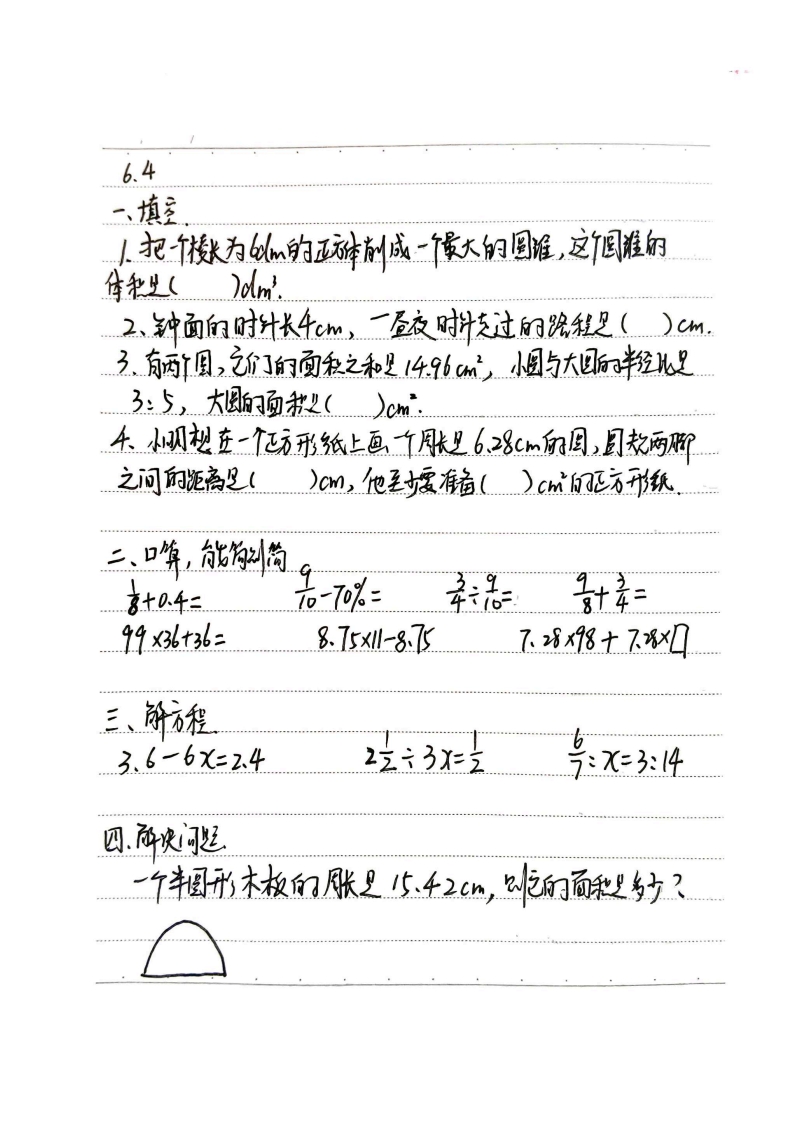 6.4
一、填空.
1. 把一个棱长为6dm的正方体削成一个最大的圆锥,这个圆锥的
体积是( )dm³.
2、钟面的时针长4cm,一昼夜时针走过的路程是( )cm.
3、有两个圆,它们的面积之和是14.96cm²,小圆与大圆的半径比是
3:5,大圆的面积是( )cm².
4、小明想在一个正方形纸上画一个周长是6.28cm的圆,圆规两脚
之间的距离是( )cm,他至少要准备( )cm²的正方形纸.
二、口算,能简则简
1/8+0.4= 9/10-70%= 3/4÷9/10= 9/8+3/4=
99×36+36= 8.75×11-8.75 7.28×98+7.28×□
三、解方程
3.6-6x=2.4 2 1/2÷3x=1/2 6/7:x=3:14
四.解决问题.
一个半圆形木板的周长是15.42cm,则它的面积是多少?